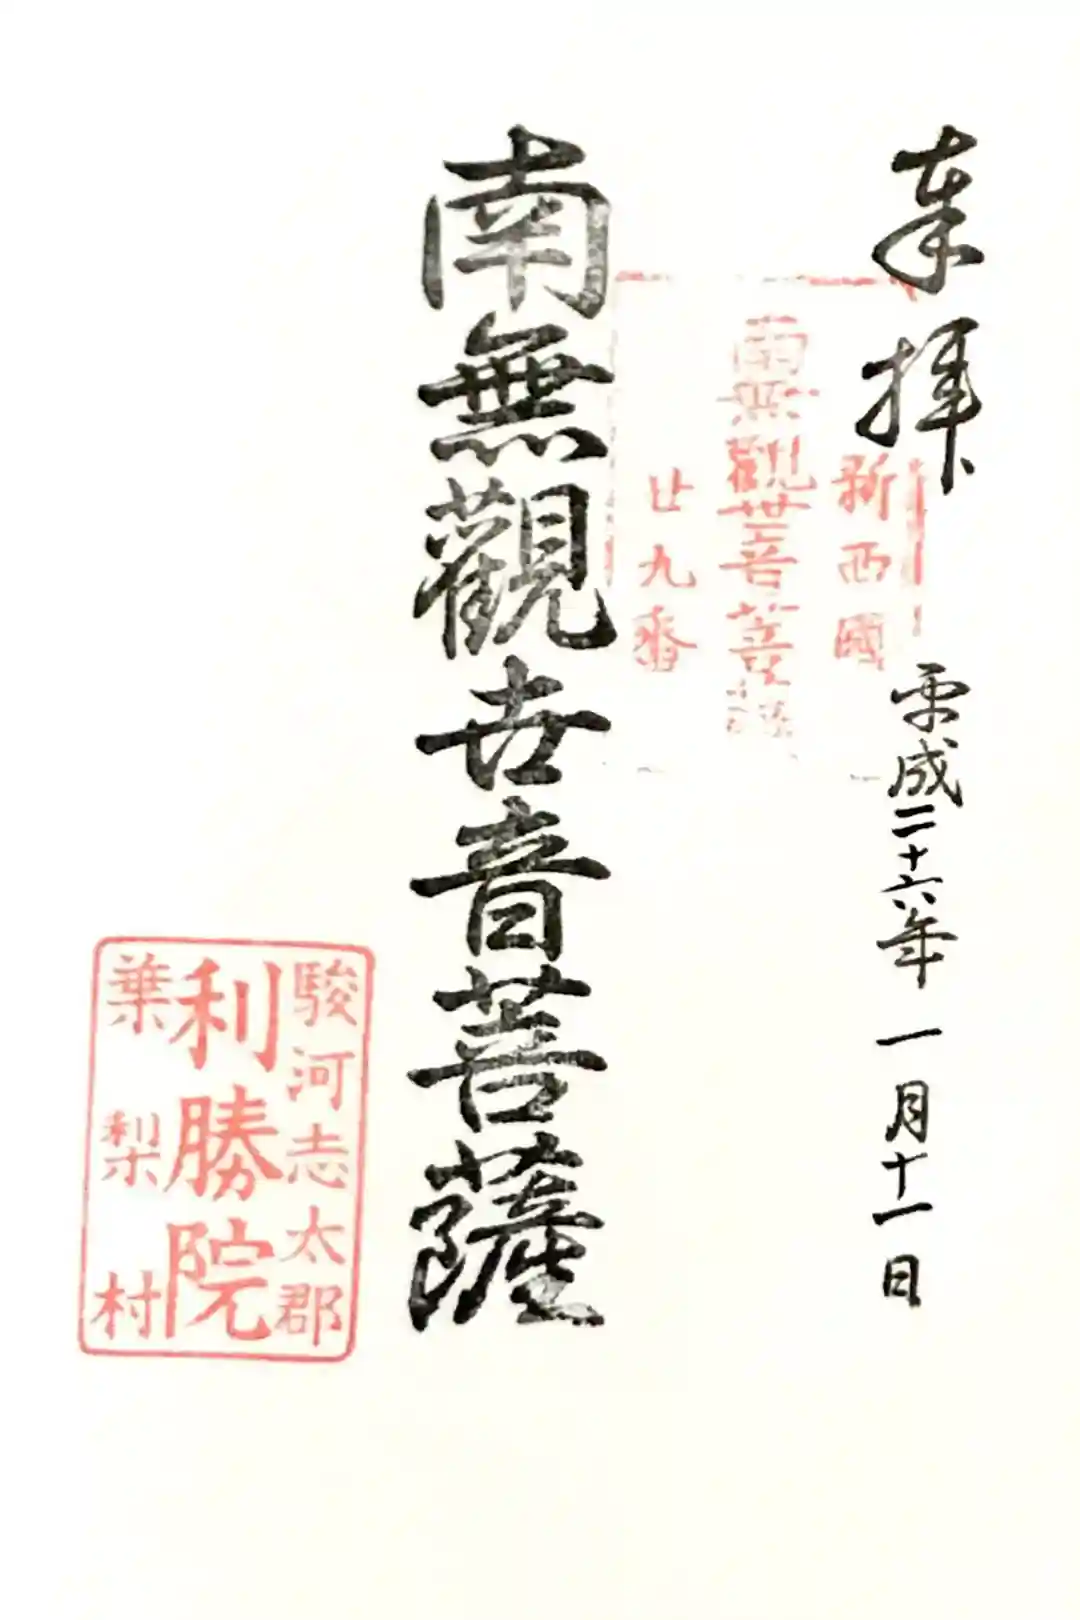 奉拝
平成二十六年 一月十一日
新西國
南無觀世音菩薩
廿九番
南無觀世音菩薩
駿河志太郡
利勝院
葉梨村